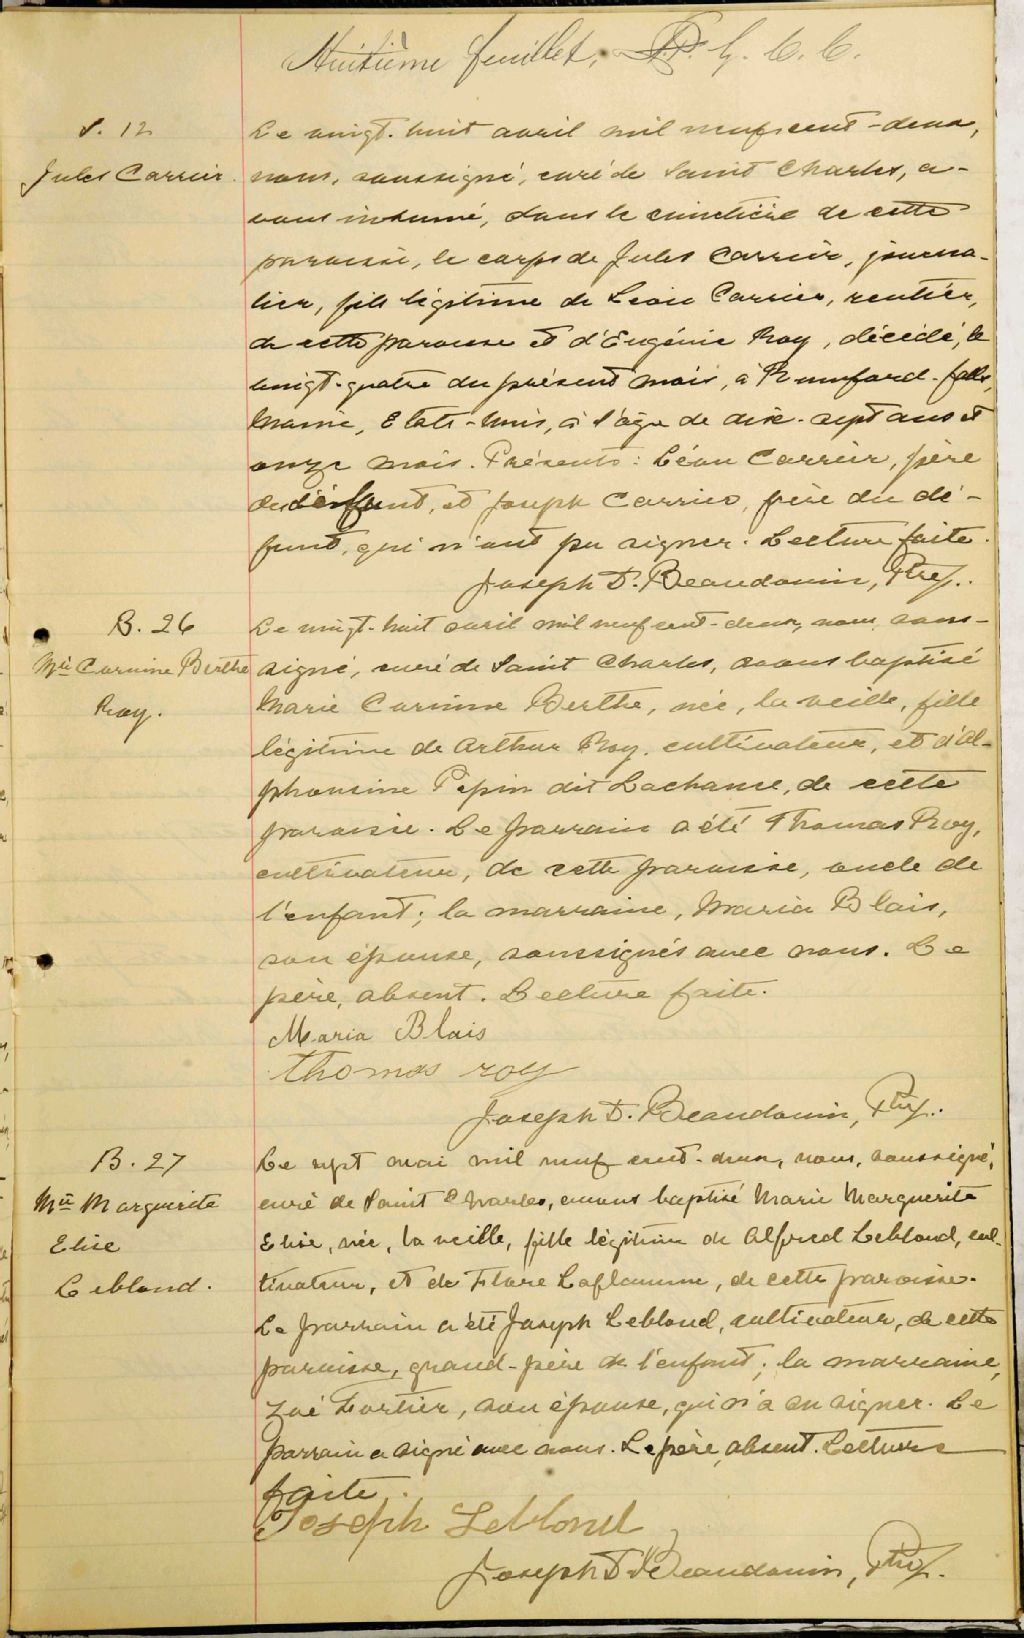 Huitième feuillet, G. C. C.
S. 12
Jules Carrier.
Le vingt-huit avril mil neuf cent-deux,
nous, soussigné, curé de Saint Charles, a-
vons inhumé, dans le cimetière de cette
paroisse, le corps de Jules Carrier, journa-
lier, fils légitime de Léon Carrier, rentier,
de cette paroisse et d'Eugénie Roy, décédé, le
vingt-quatre du présent mois, à Rumford-falls,
Maine, Etats-Unis, à l'âge de dix-sept ans et
onze mois. Présents: Léon Carrier, père
du défunt, et Joseph Carrier, frère du dé-
funt, qui n'ont pu signer. Lecture faite.
Joseph D. Beaudouin, Ptre.
B. 26
Mie Corinne Berthe
Roy.
Le vingt-huit avril mil neuf cent-deux, nous, sous-
signé, curé de Saint Charles, avons baptisé
Marie Corinne Berthe, née, la veille, fille
légitime de Arthur Roy, cultivateur, et d'Al-
phonsine Pepin dit Lachance, de cette
paroisse. Le parrain a été Thomas Roy,
cultivateur, de cette paroisse, oncle de
l'enfant; la marraine, Maria Blais,
son épouse, soussignés avec nous. Le
père, absent. Lecture faite.
Maria Blais
Thomas roy
Joseph D. Beaudouin, Ptre.
B. 27
Mie Marguerite
Elise
Leblond.
Le sept mai mil neuf cent-deux, nous, soussigné,
curé de Saint Charles, avons baptisé Marie Marguerite
Elise, née, la veille, fille légitime de Alfred Leblond, cul-
tivateur, et de Flore Laflamme, de cette paroisse.
Le parrain a été Joseph Leblond, cultivateur, de cette
paroisse, grand-père de l'enfant; la marraine,
Zoé Fortier, son épouse, qui n'a su signer. Le
parrain a signé avec nous. Le père, absent. Lecture
faite.
Joseph Leblond
Joseph D. Beaudouin, Ptre.